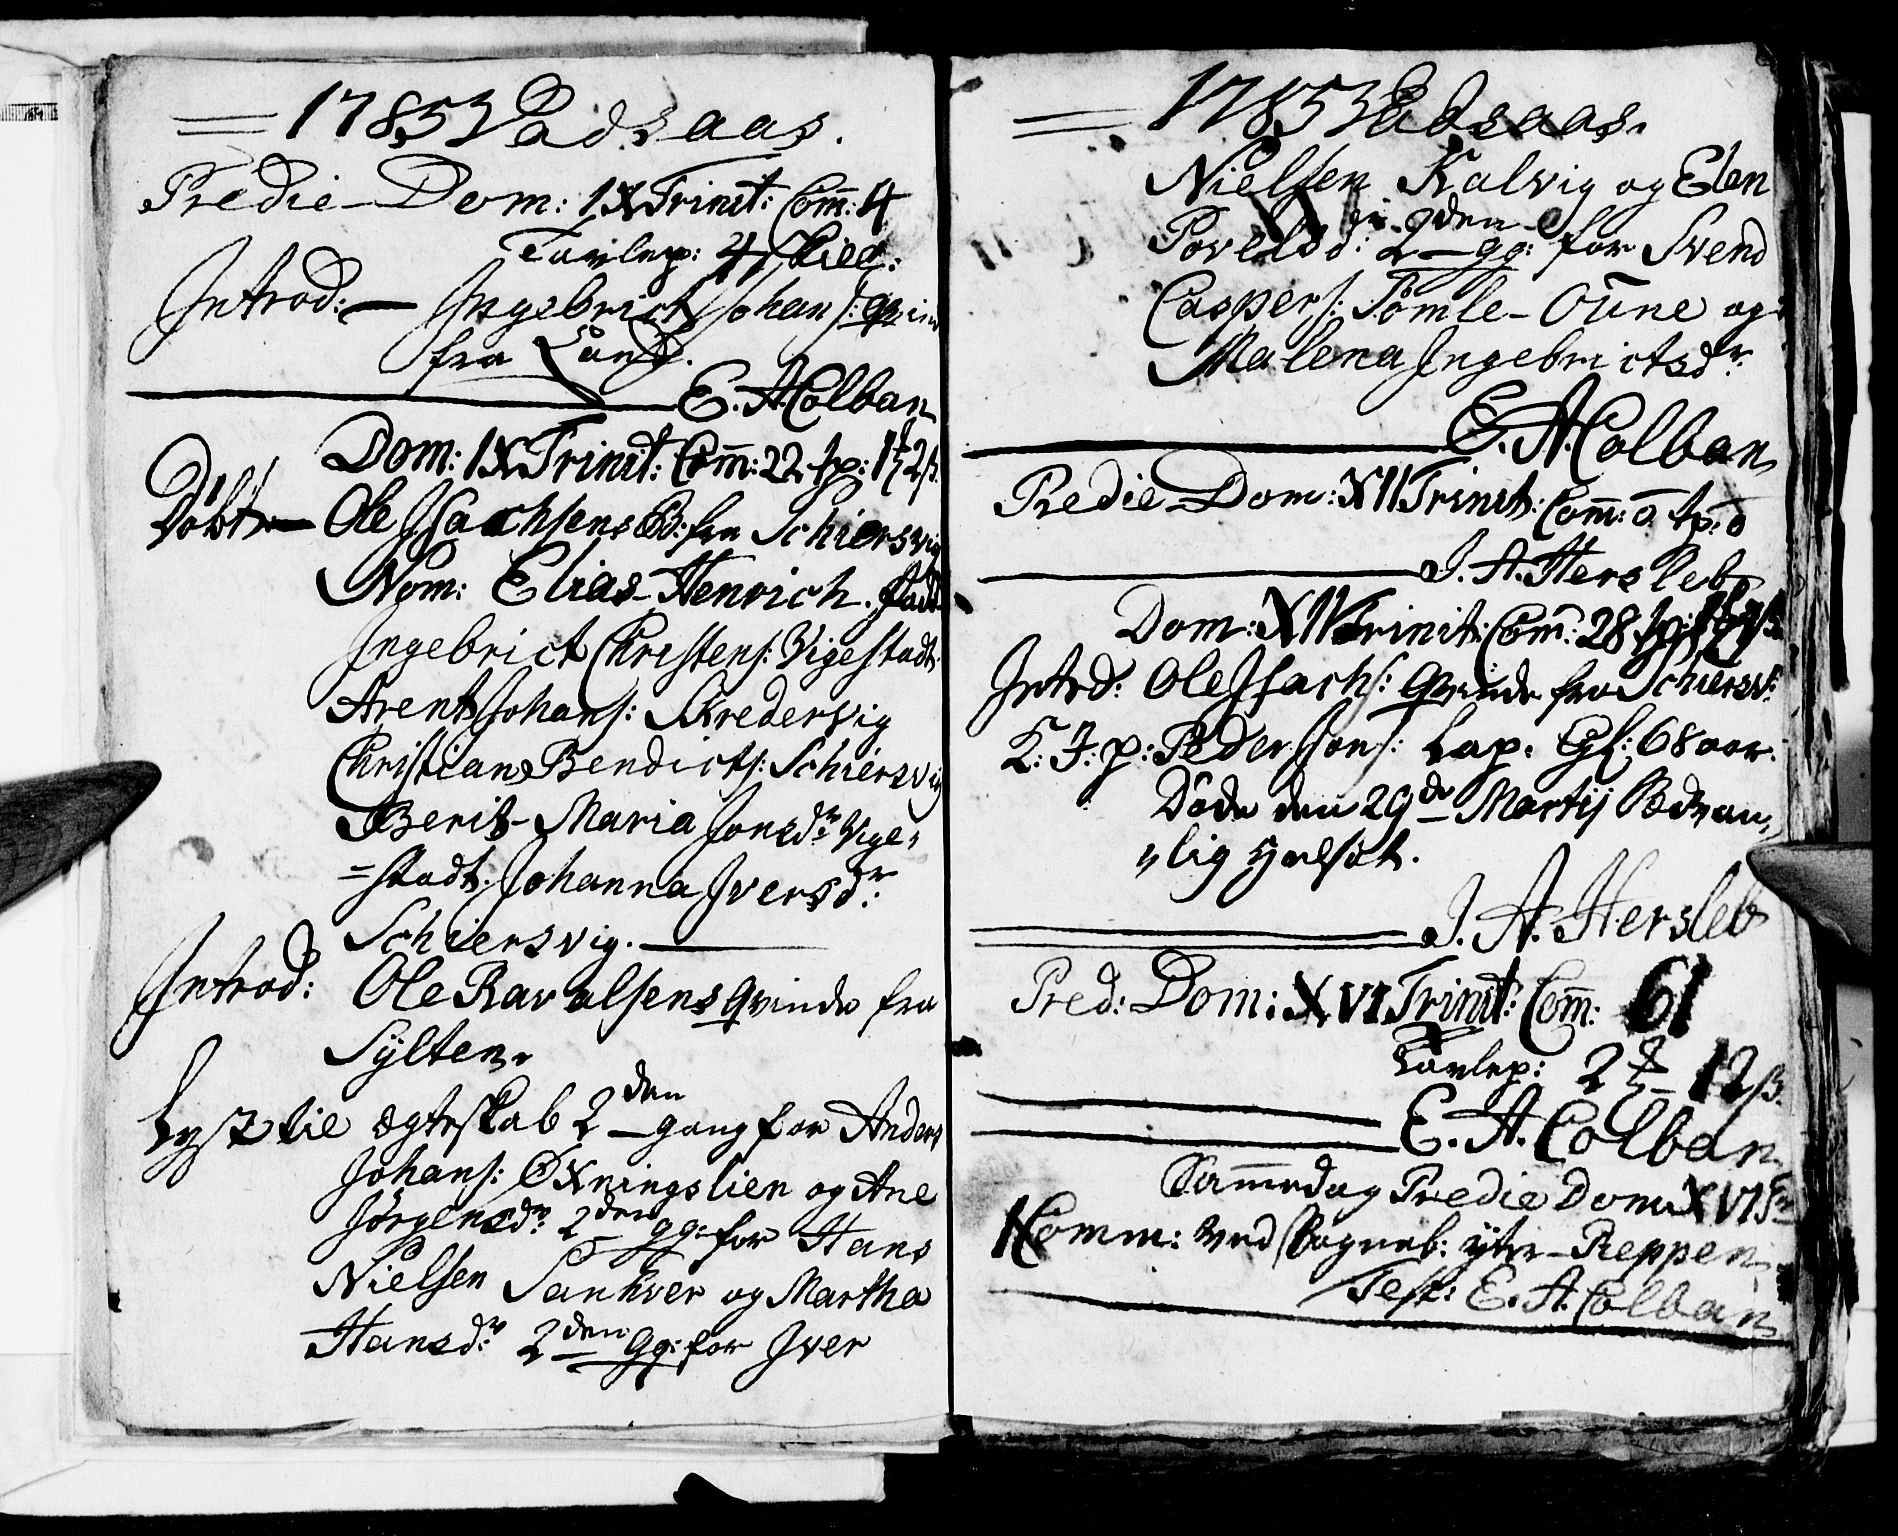 1785 Vadsaas.
Predie Dom: IX Trinit: Com̄: 4
Tavlep: 4 skill:
Introd: Ingebrict Johans: Qvin
fra Land.
E. A. Colban
Dom: IX Trinit: Com̄: 22 tp: 1 2 s.
Døbt Ole Isachsens Bd: fra Schiersvig
Nom: Elias Henrich. fadd
Ingebrict Christens: Vigestadt
Arent Johans: Skredervig
Christian Bendicts: Schiersvig
Berit Maria Jonsdr: Vige=
=stadt. Johanna Iversdr:
Schiersvig.
Introd: Ole Ravalsens Qvinde fra
Sÿlten.
Lyst til ægteskab 2den gang for Anders
Johans: Øxningslien og Ane
Jørgensdr: 2den gg: for Hans
Nielsen Sanhver og Martha
Hansdr: 2den gg: for Iver
1785 Vadsaas.
Nielsen Kalvig og Elen
Povelsd: 2den gg: for Svend
Caspers: Tømle-Oūne og
Malena Ingebrictsdr:
E. A. Colban
Predie Dom: XII Trinit: Com̄: o tp: o
J. A. Hersleb
Dom: Trinit: Com̄: 28 tp:
Introd: Ole Isachs: Qvinde fra Schiersv:
K: J: p: Peder Jons: Lap. Gl: 68 aar:
Døde den 29de Martij Sædvan,
„lig
J. A. Hersleb
Pred: Dom: XVI Trinit: Com̄: 61
Tavlep: 2 12 s.
E. A. Colban
Samedag Predie Dom: XVI
1 Comm: ved Sogneb: ÿtre-Reppen
Test: E. A. Colban